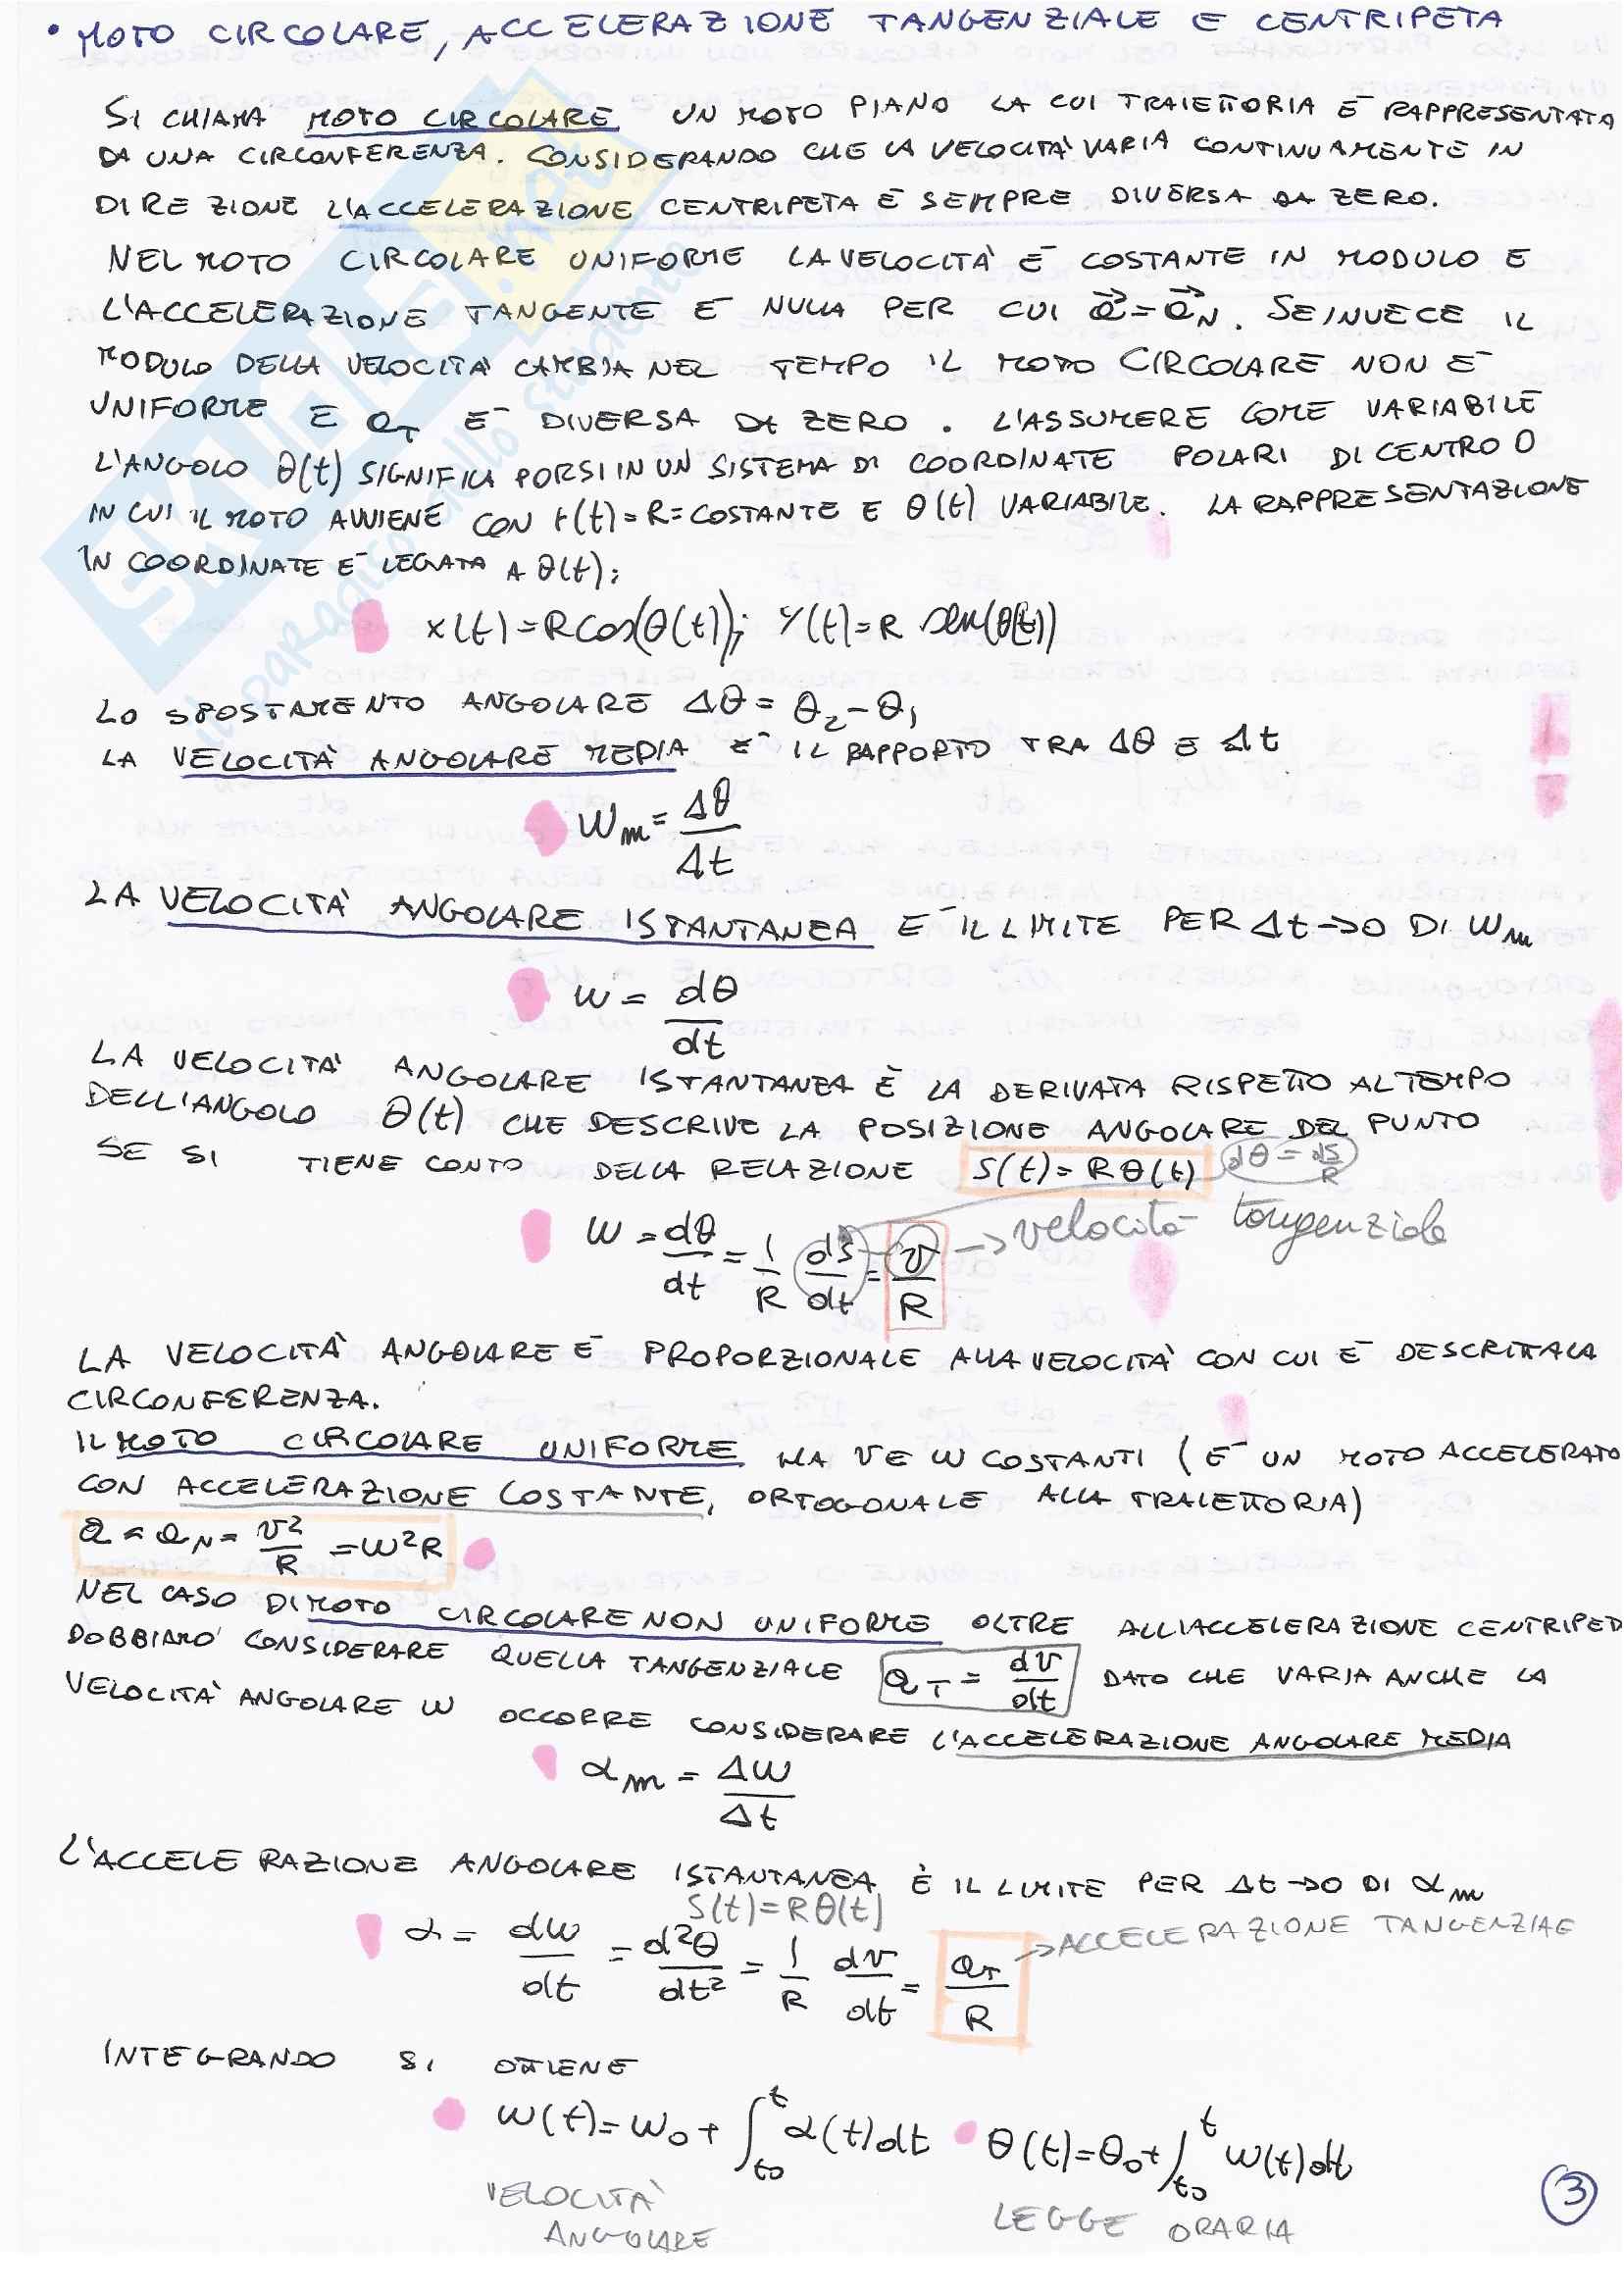 • MOTO CIRCOLARE, ACCELERAZIONE TANGENZIALE E CENTRIPETA
SI CHIAMA MOTO CIRCOLARE UN MOTO PIANO LA CUI TRAIETTORIA E' RAPPRESENTATA
DA UNA CIRCONFERENZA. CONSIDERANDO CHE LA VELOCITÀ VARIA CONTINUAMENTE IN
DIREZIONE L'ACCELERAZIONE CENTRIPETA E' SEMPRE DIVERSA DA ZERO.
NEL MOTO CIRCOLARE UNIFORME LA VELOCITÀ E' COSTANTE IN MODULO E
L'ACCELERAZIONE TANGENTE E' NULLA PER CUI a⃗ = a⃗_N. SE INVECE IL
MODULO DELLA VELOCITÀ CAMBIA NEL TEMPO IL MOTO CIRCOLARE NON E'
UNIFORME E a_T E' DIVERSA DA ZERO. L'ASSUMERE COME VARIABILE
L'ANGOLO θ(t) SIGNIFICA PORSI IN UN SISTEMA DI COORDINATE POLARI DI CENTRO O
IN CUI IL MOTO AVVIENE CON r(t)=R=COSTANTE E θ(t) VARIABILE. LA RAPPRESENTAZIONE
IN COORDINATE E' LEGATA A θ(t):
x(t)=R cos(θ(t)); y(t)=R sen(θ(t))
LO SPOSTAMENTO ANGOLARE Δθ = θ₂-θ₁
LA VELOCITÀ ANGOLARE MEDIA E' IL RAPPORTO TRA Δθ E Δt
ω_m = Δθ/Δt
LA VELOCITÀ ANGOLARE ISTANTANEA E' IL LIMITE PER Δt→0 DI ω_m
ω = dθ/dt
LA VELOCITÀ ANGOLARE ISTANTANEA È LA DERIVATA RISPETTO AL TEMPO
DELL'ANGOLO θ(t) CHE DESCRIVE LA POSIZIONE ANGOLARE DEL PUNTO
SE SI TIENE CONTO DELLA RELAZIONE S(t)=Rθ(t) dθ = dS/R
ω = dθ/dt = 1/R dS/dt = v/R → velocità tangenziale
LA VELOCITÀ ANGOLARE E' PROPORZIONALE ALLA VELOCITÀ CON CUI E' DESCRITTA LA
CIRCONFERENZA.
IL MOTO CIRCOLARE UNIFORME HA v E ω COSTANTI (E' UN MOTO ACCELERATO
CON ACCELERAZIONE COSTANTE, ORTOGONALE ALLA TRAIETTORIA)
a = a_N = v²/R = ω²R
NEL CASO DI MOTO CIRCOLARE NON UNIFORME OLTRE ALL'ACCELERAZIONE CENTRIPED
DOBBIAMO CONSIDERARE QUELLA TANGENZIALE a_T = dv/dt DATO CHE VARIA ANCHE LA
VELOCITÀ ANGOLARE ω OCCORRE CONSIDERARE L'ACCELERAZIONE ANGOLARE MEDIA
α_m = Δω/Δt
L'ACCELERAZIONE ANGOLARE ISTANTANEA È IL LIMITE PER Δt→0 DI α_m
S(t)=Rθ(t)
α = dω/dt = d²θ/dt² = 1/R dv/dt = a_T/R → ACCELERAZIONE TANGENZIALE
INTEGRANDO SI OTTIENE
ω(t)=ω₀+∫_{t₀}^{t} α(t)dt θ(t)=θ₀+∫_{t₀}^{t} ω(t)dt
VELOCITÀ ANGOLARE
LEGGE ORARIA
3
SKUOLA.net
il paradiso dello studente